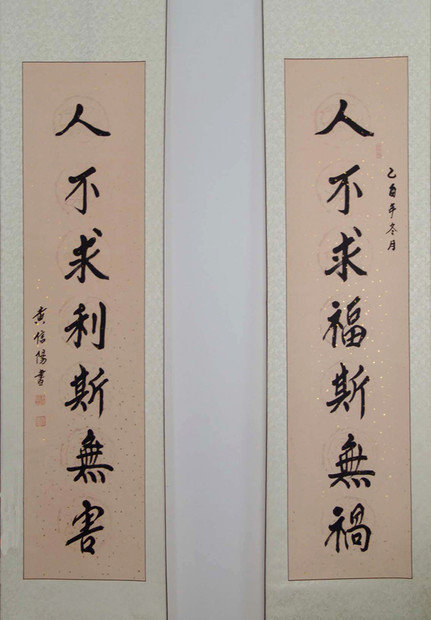 人不求福斯無禍
乙酉年冬月
人不求利斯無害
黄信陽書